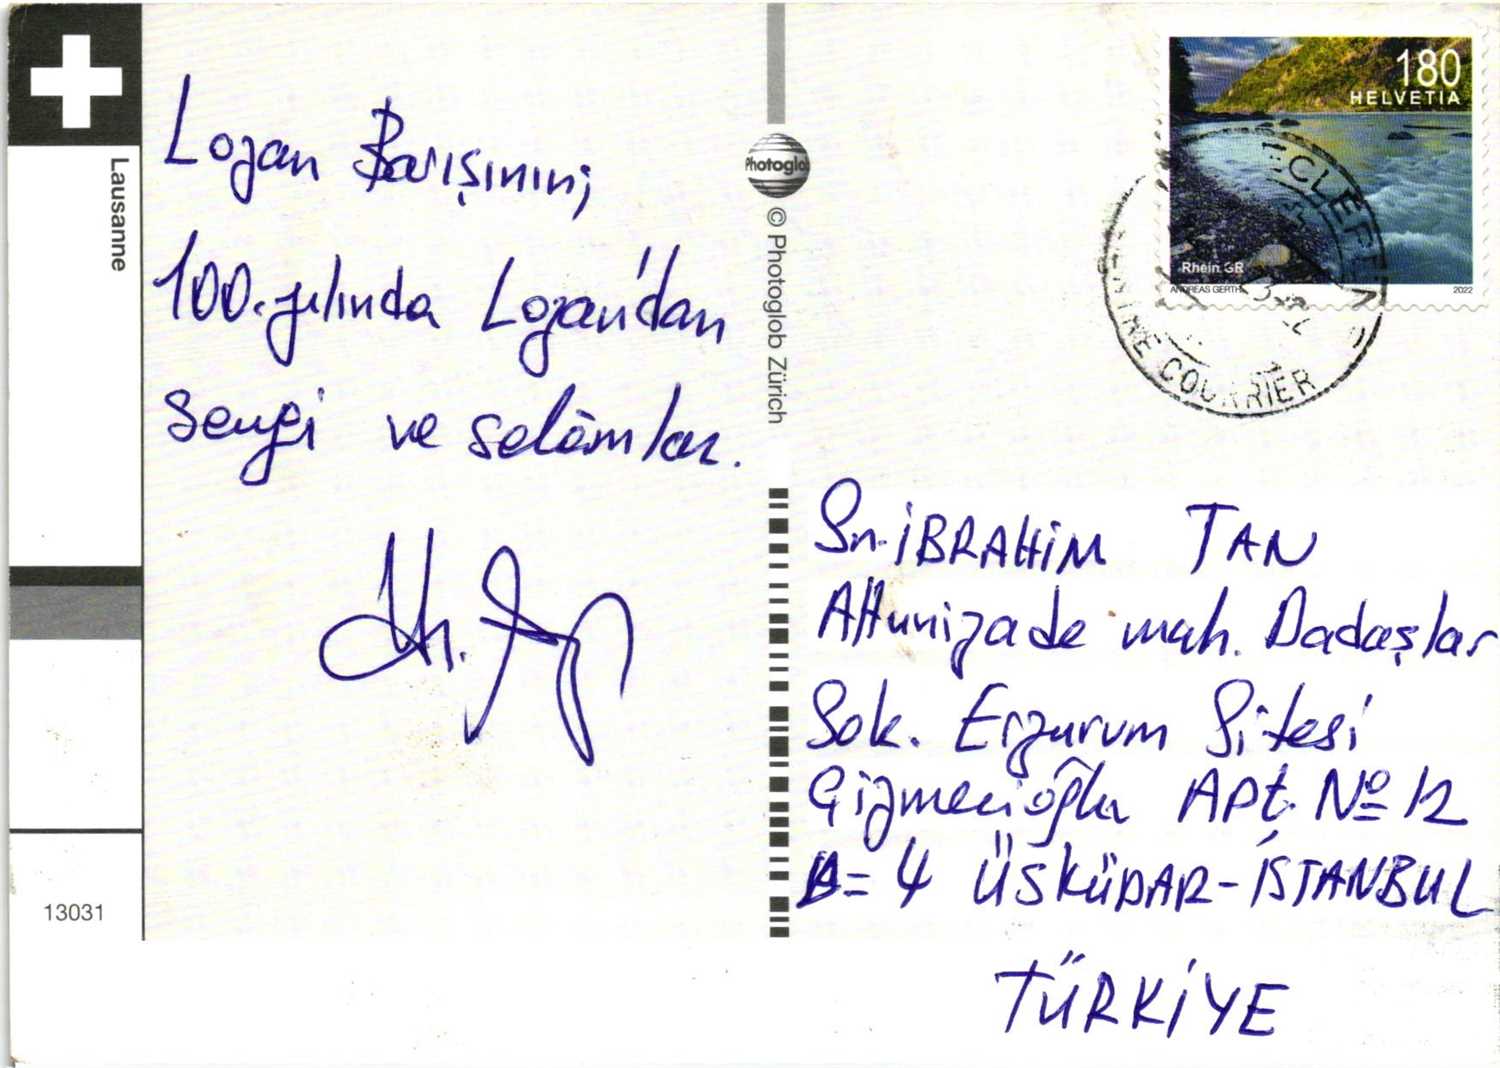 Lausanne
Lozan Barışının;
100. yılında Lozan'dan
sevgi ve selâmlar.
13031
Photoglob
© Photoglob Zürich
180
HELVETIA
Rhein GR
ANDREAS GERTH
2022
COURRIER
Sn. İBRAHİM TAN
Altunizade mah. Dadaşlar
Sok. Erzurum Sitesi
Çizmecioğlu Apt. Nº 12
D=4 ÜSKÜDAR-İSTANBUL
TÜRKİYE